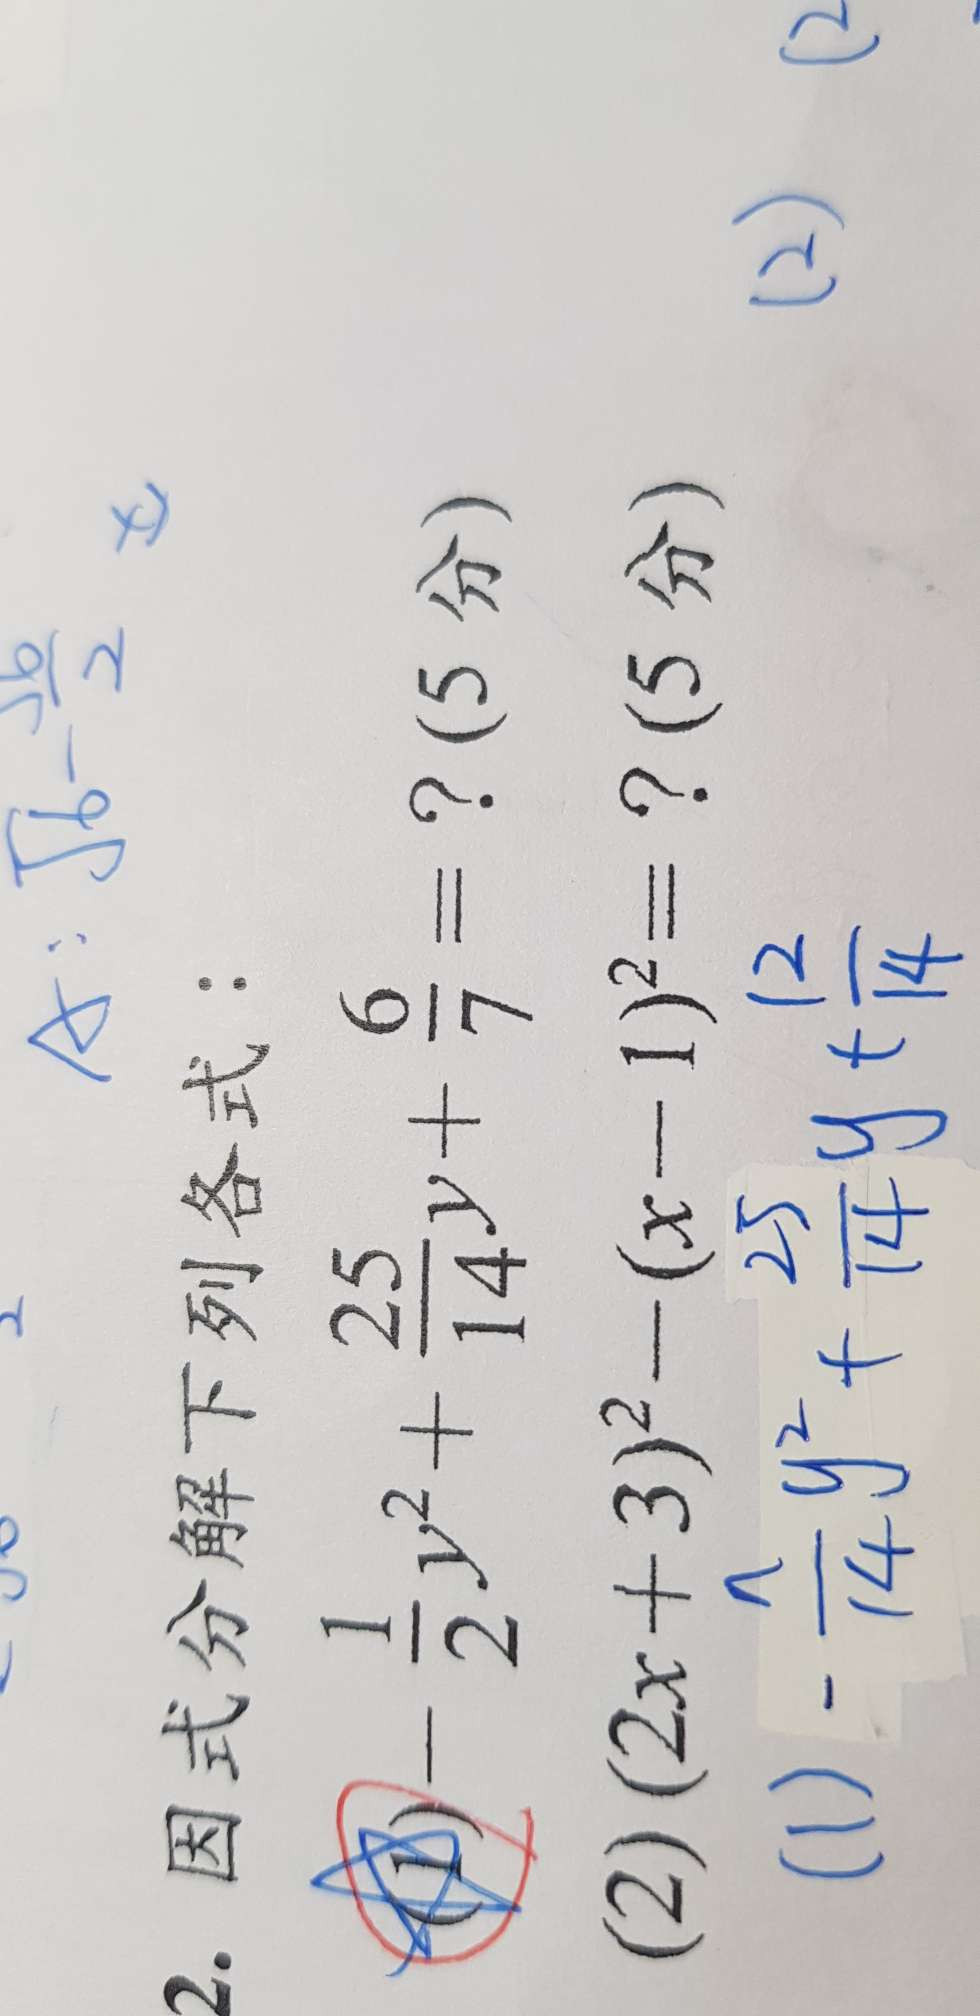 A: √6 - √6/2 x
2. 因式分解下列各式：
(1) -1/2 y² + 25/14 y + 6/7 = ? (5 分)
(2) (2x + 3)² - (x - 1)² = ? (5 分)
(1) -7/14 y² + 25/14 y + 12/14 (2)
(2